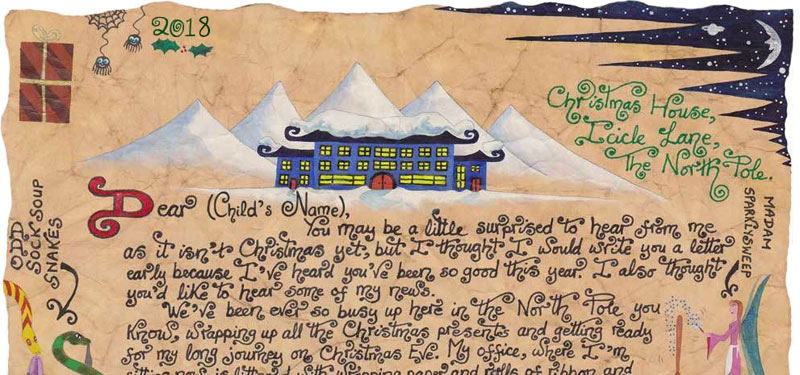 2018
Christmas House,
Icicle Lane,
The North Pole.
Dear (Child's Name),
You may be a little surprised to hear from me
as it isn't Christmas yet, but I thought I would write you a letter
early because I've heard you've been so good this year. I also thought
you'd like to hear some of my news.
We've been ever so busy up here in the North Pole you
know, wrapping up all the Christmas presents and getting ready
for my long journey on Christmas Eve. My office, where I'm
sitting now is littered with wrapping paper and rolls of ribbon and
ODD
SOCK SOUP
SNAKES
MADAM
SPARKLYSWEEP